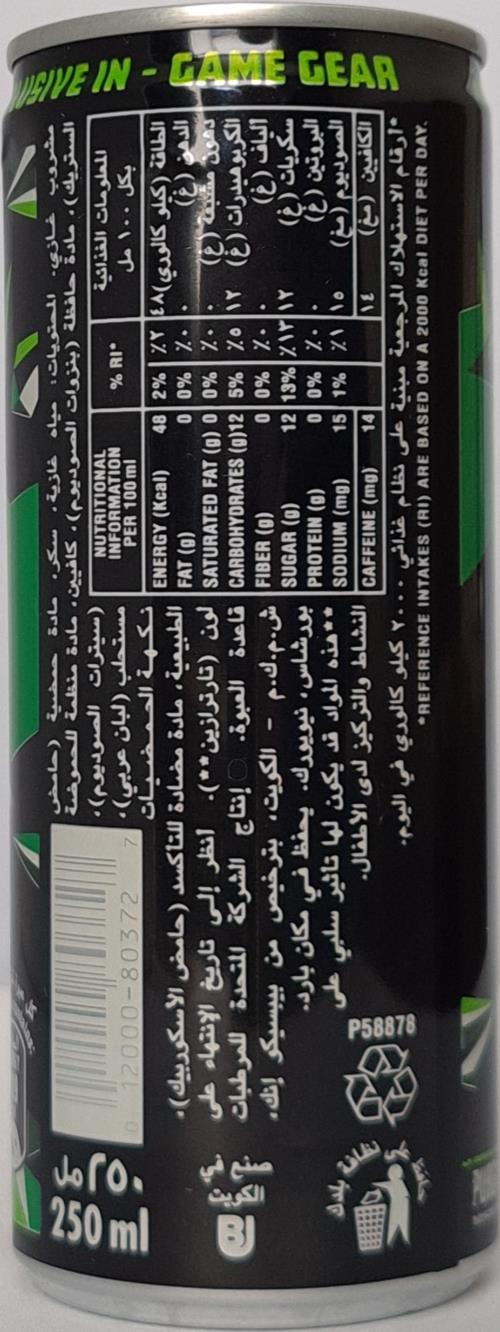 USIVE IN - GAME GEAR
مشروب غازي. المحتويات: مياه غازية، سكر، مادة حمضية (حامض
الستريك)، مادة حافظة (بنزوات الصوديوم)، كافيين، مادة منظمة للحموضة
(سيترات الصوديوم)،
مستحلب (لبان عربي)،
نكهة الحمضيات
الطبيعية، مادة مضادة للتأكسد (حامض الأسكوربيك)،
لون (تارترازين**). أنظر إلى تاريخ الإنتهاء على
قاعدة العبوة. إنتاج الشركة المتحدة للمرطبات
ش.م.ك.م - الكويت، بترخيص من بيبسيكو إنك.
بورشاس، نيويورك. يحفظ في مكان بارد.
**هذه المواد قد يكون لها تأثير سلبي على
النشاط والتركيز لدى الأطفال.
NUTRITIONAL INFORMATION PER 100 ml % RI* المعلومات الغذائية بكل ١٠٠ مل
ENERGY (Kcal) 48 2% ٪٢ ٤٨ الطاقة (كيلو كالوري)
FAT (g) 0 0% ٪٠ ٠ الدهن (غ)
SATURATED FAT (g) 0 0% ٪٠ ٠ دهون مشبعة (غ)
CARBOHYDRATES (g) 12 5% ٪٥ ١٢ الكربوهيدرات (غ)
FIBER (g) 0 0% ٪٠ ٠ ألياف (غ)
SUGAR (g) 12 13% ٪١٣ ١٢ سكريات (غ)
PROTEIN (g) 0 0% ٪٠ ٠ البروتين (غ)
SODIUM (mg) 15 1% ٪١ ١٥ الصوديوم (مغ)
CAFFEINE (mg) 14 ١٤ الكافيين (مغ)
*أرقام الاستهلاك المرجعية مبنية على نظام غذائي ٢٠٠٠ كيلو كالوري في اليوم.
*REFERENCE INTAKES (RI) ARE BASED ON A 2000 Kcal DIET PER DAY.
0 12000-80372 7
٢٥٠ مل
250 ml
صنع في
الكويت
BJ
P58878
حافظ على نظافة بلدك